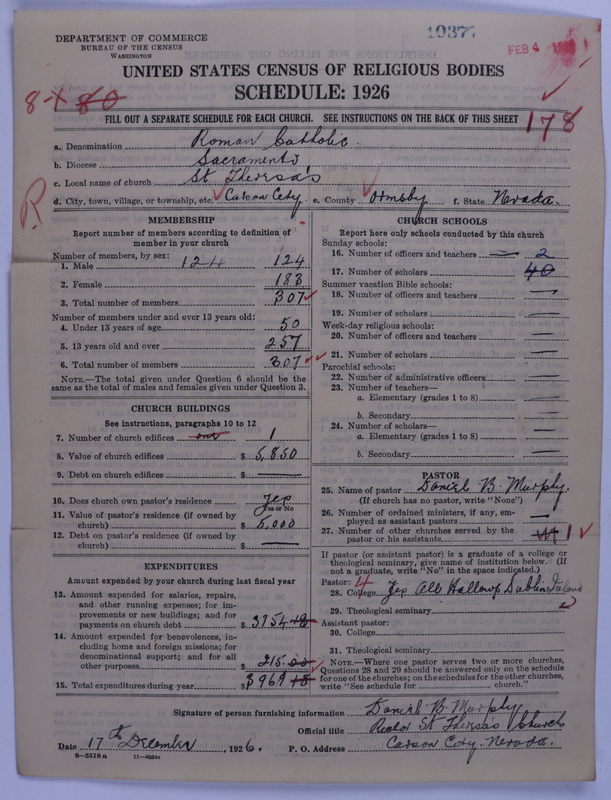 DEPARTMENT OF COMMERCE
BUREAU OF THE CENSUS
WASHINGTON
19377
FEB 4
UNITED STATES CENSUS OF RELIGIOUS BODIES
SCHEDULE: 1926
8-1 80
FILL OUT A SEPARATE SCHEDULE FOR EACH CHURCH. SEE INSTRUCTIONS ON THE BACK OF THIS SHEET
178
a. Denomination Roman Catholic.
b. Diocese Sacramento,
c. Local name of church St Theresa's
d. City, town, village, or township, etc. Carson City e. County Ormsby f. State Nevada.
R
MEMBERSHIP
Report number of members according to definition of member in your church
Number of members, by sex:
1. Male 124 124
2. Female 183
3. Total number of members 307
Number of members under and over 13 years old:
4. Under 13 years of age 50
5. 13 years old and over 257
6. Total number of members 307
NOTE.—The total given under Question 6 should be the
same as the total of males and females given under Question 3.
CHURCH BUILDINGS
See instructions, paragraphs 10 to 12
7. Number of church edifices one 1
8. Value of church edifices $ 5,850
9. Debt on church edifices $ —
10. Does church own pastor's residence Yes
Yes or No
11. Value of pastor's residence (if owned by
church) $ 5,000
12. Debt on pastor's residence (if owned by
church) $ —
EXPENDITURES
Amount expended by your church during last fiscal year
13. Amount expended for salaries, repairs,
and other running expenses; for im-
provements or new buildings; and for
payments on church debt $ 3754 48
14. Amount expended for benevolences, in-
cluding home and foreign missions; for
denominational support; and for all
other purposes $ 215.00
15. Total expenditures during year $ 3969 48
CHURCH SCHOOLS
Report here only schools conducted by this church
Sunday schools:
16. Number of officers and teachers 2
17. Number of scholars 40
Summer vacation Bible schools:
18. Number of officers and teachers —
19. Number of scholars —
Week-day religious schools:
20. Number of officers and teachers —
21. Number of scholars —
Parochial schools:
22. Number of administrative officers —
23. Number of teachers—
a. Elementary (grades 1 to 8) —
b. Secondary —
24. Number of scholars—
a. Elementary (grades 1 to 8) —
b. Secondary —
PASTOR
25. Name of pastor Daniel B. Murphy.
(If church has no pastor, write "None")
26. Number of ordained ministers, if any, em-
ployed as assistant pastors —
27. Number of other churches served by the
pastor or his assistants 1
If pastor (or assistant pastor) is a graduate of a college or
theological seminary, give name of institution below. (If
not a graduate, write "No" in the space indicated.)
Pastor: 4
28. College Yes All Hallows Dublin Ireland
29. Theological seminary
Assistant pastor:
30. College
31. Theological seminary
NOTE.—Where one pastor serves two or more churches,
Questions 28 and 29 should be answered only on the schedule
for one of the churches; on the schedules for the other churches,
write "See schedule for church."
Signature of person furnishing information Daniel B. Murphy
Official title Rector St Theresas Church
Date 17th December, 1926. P. O. Address Carson City. Nevada.
8—5318a 11—9064